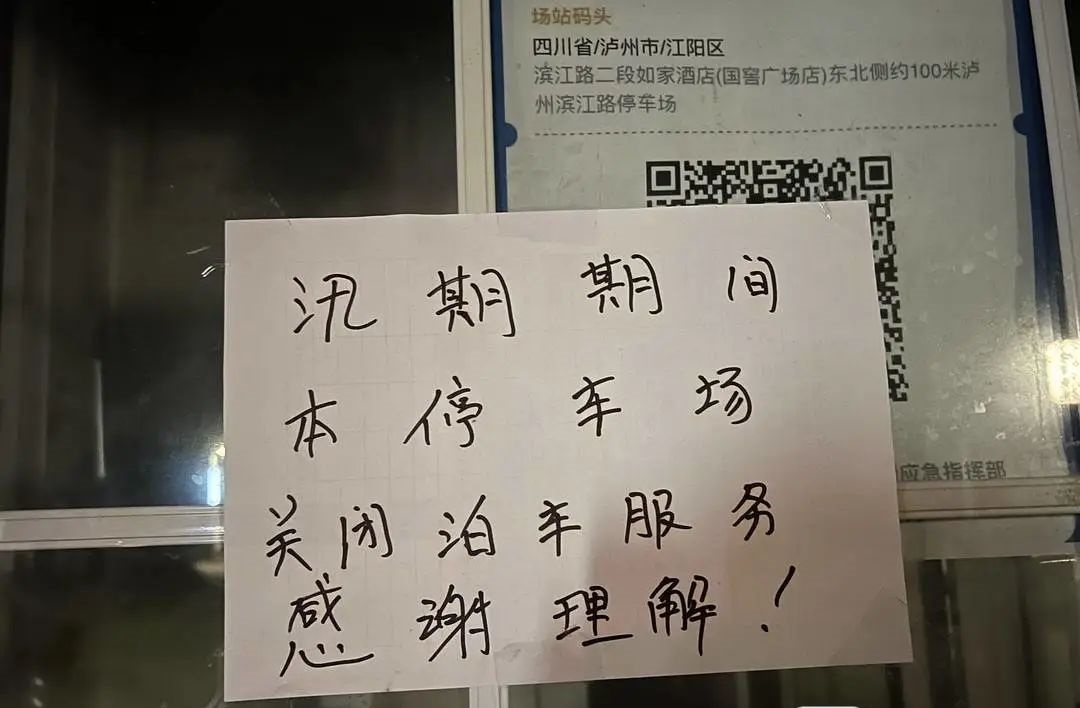 场站码头
四川省/泸州市/江阳区
滨江路二段如家酒店(国窖广场店)东北侧约100米泸
州滨江路停车场
汛期期间
本停车场
关闭泊车服务
感谢理解！
应急指挥部